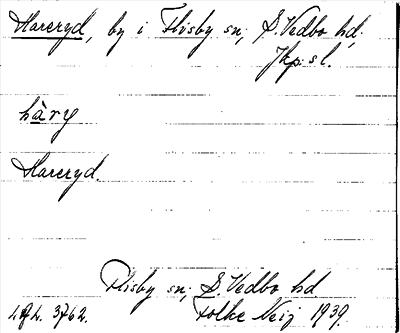 Harcryd, by i Flisby sn; S. Vedbo hd,
Jkp. sl.
hàry
Harcryd.
Flisby sn; S. Vedbo hd
Folke Neij 1939.
3762.